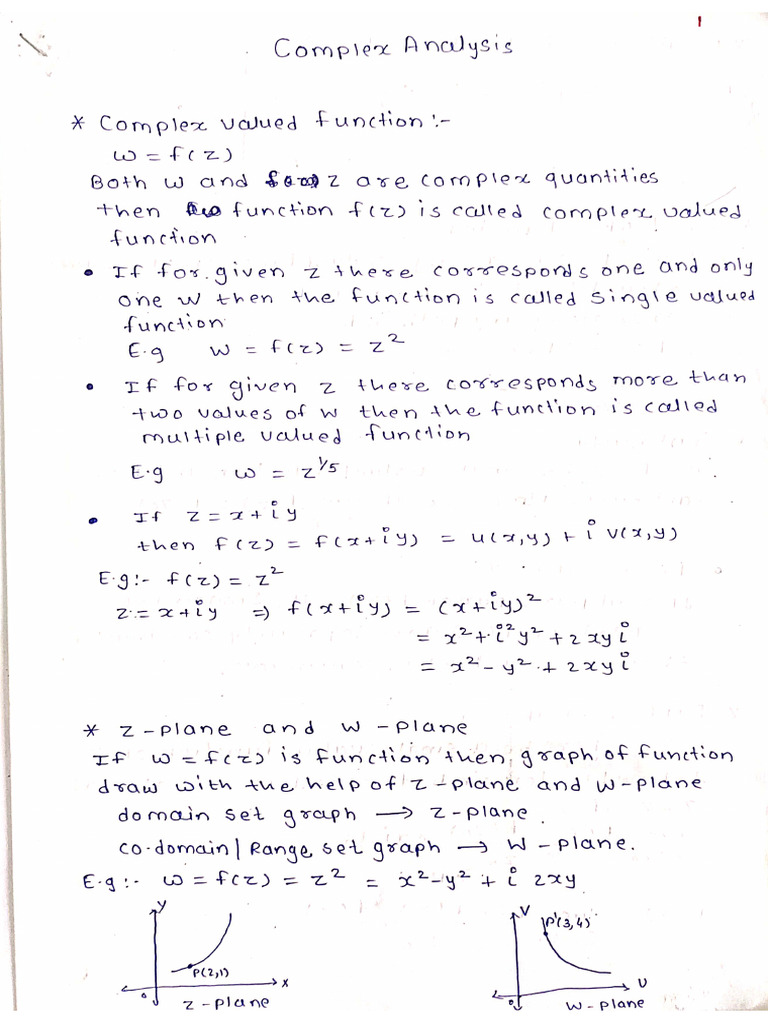 1
Complex Analysis
* Complex valued function :-
w = f(z)
Both w and z are complex quantities
then function f(z) is called complex valued
function
• If for given z there corresponds one and only
one w then the function is called single valued
function
E.g w = f(z) = z²
• If for given z there corresponds more than
two values of w then the function is called
multiple valued function
E.g w = z^1/5
• If z = x + iy
then f(z) = f(x + iy) = u(x,y) + i v(x,y)
E.g :- f(z) = z²
z = x + iy ⇒ f(x + iy) = (x + iy)²
= x² + i²y² + 2xyi
= x² - y² + 2xyi
* z-plane and w-plane
If w = f(z) is function then graph of function
draw with the help of z-plane and w-plane
domain set graph → z-plane.
co-domain/Range set graph → w-plane.
E.g :- w = f(z) = z² = x² - y² + i 2xy
y
P(2,1)
x
0
z-plane
v
P'(3,4)
u
0
w-plane